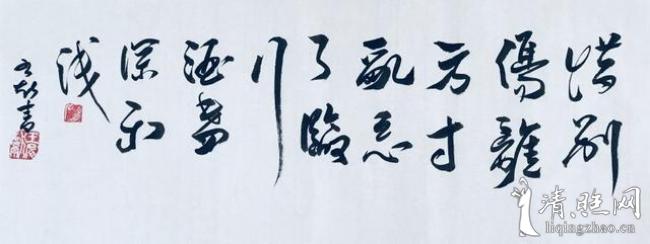 惜别
傷離
方寸
亂忘
了臨
行
酒盞
深和
淺
清照网
liqingzhao.cn